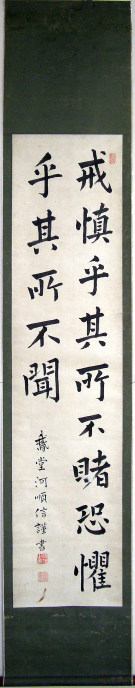 戒慎乎其所不睹恐懼
乎其所不聞
堂河順信謹書